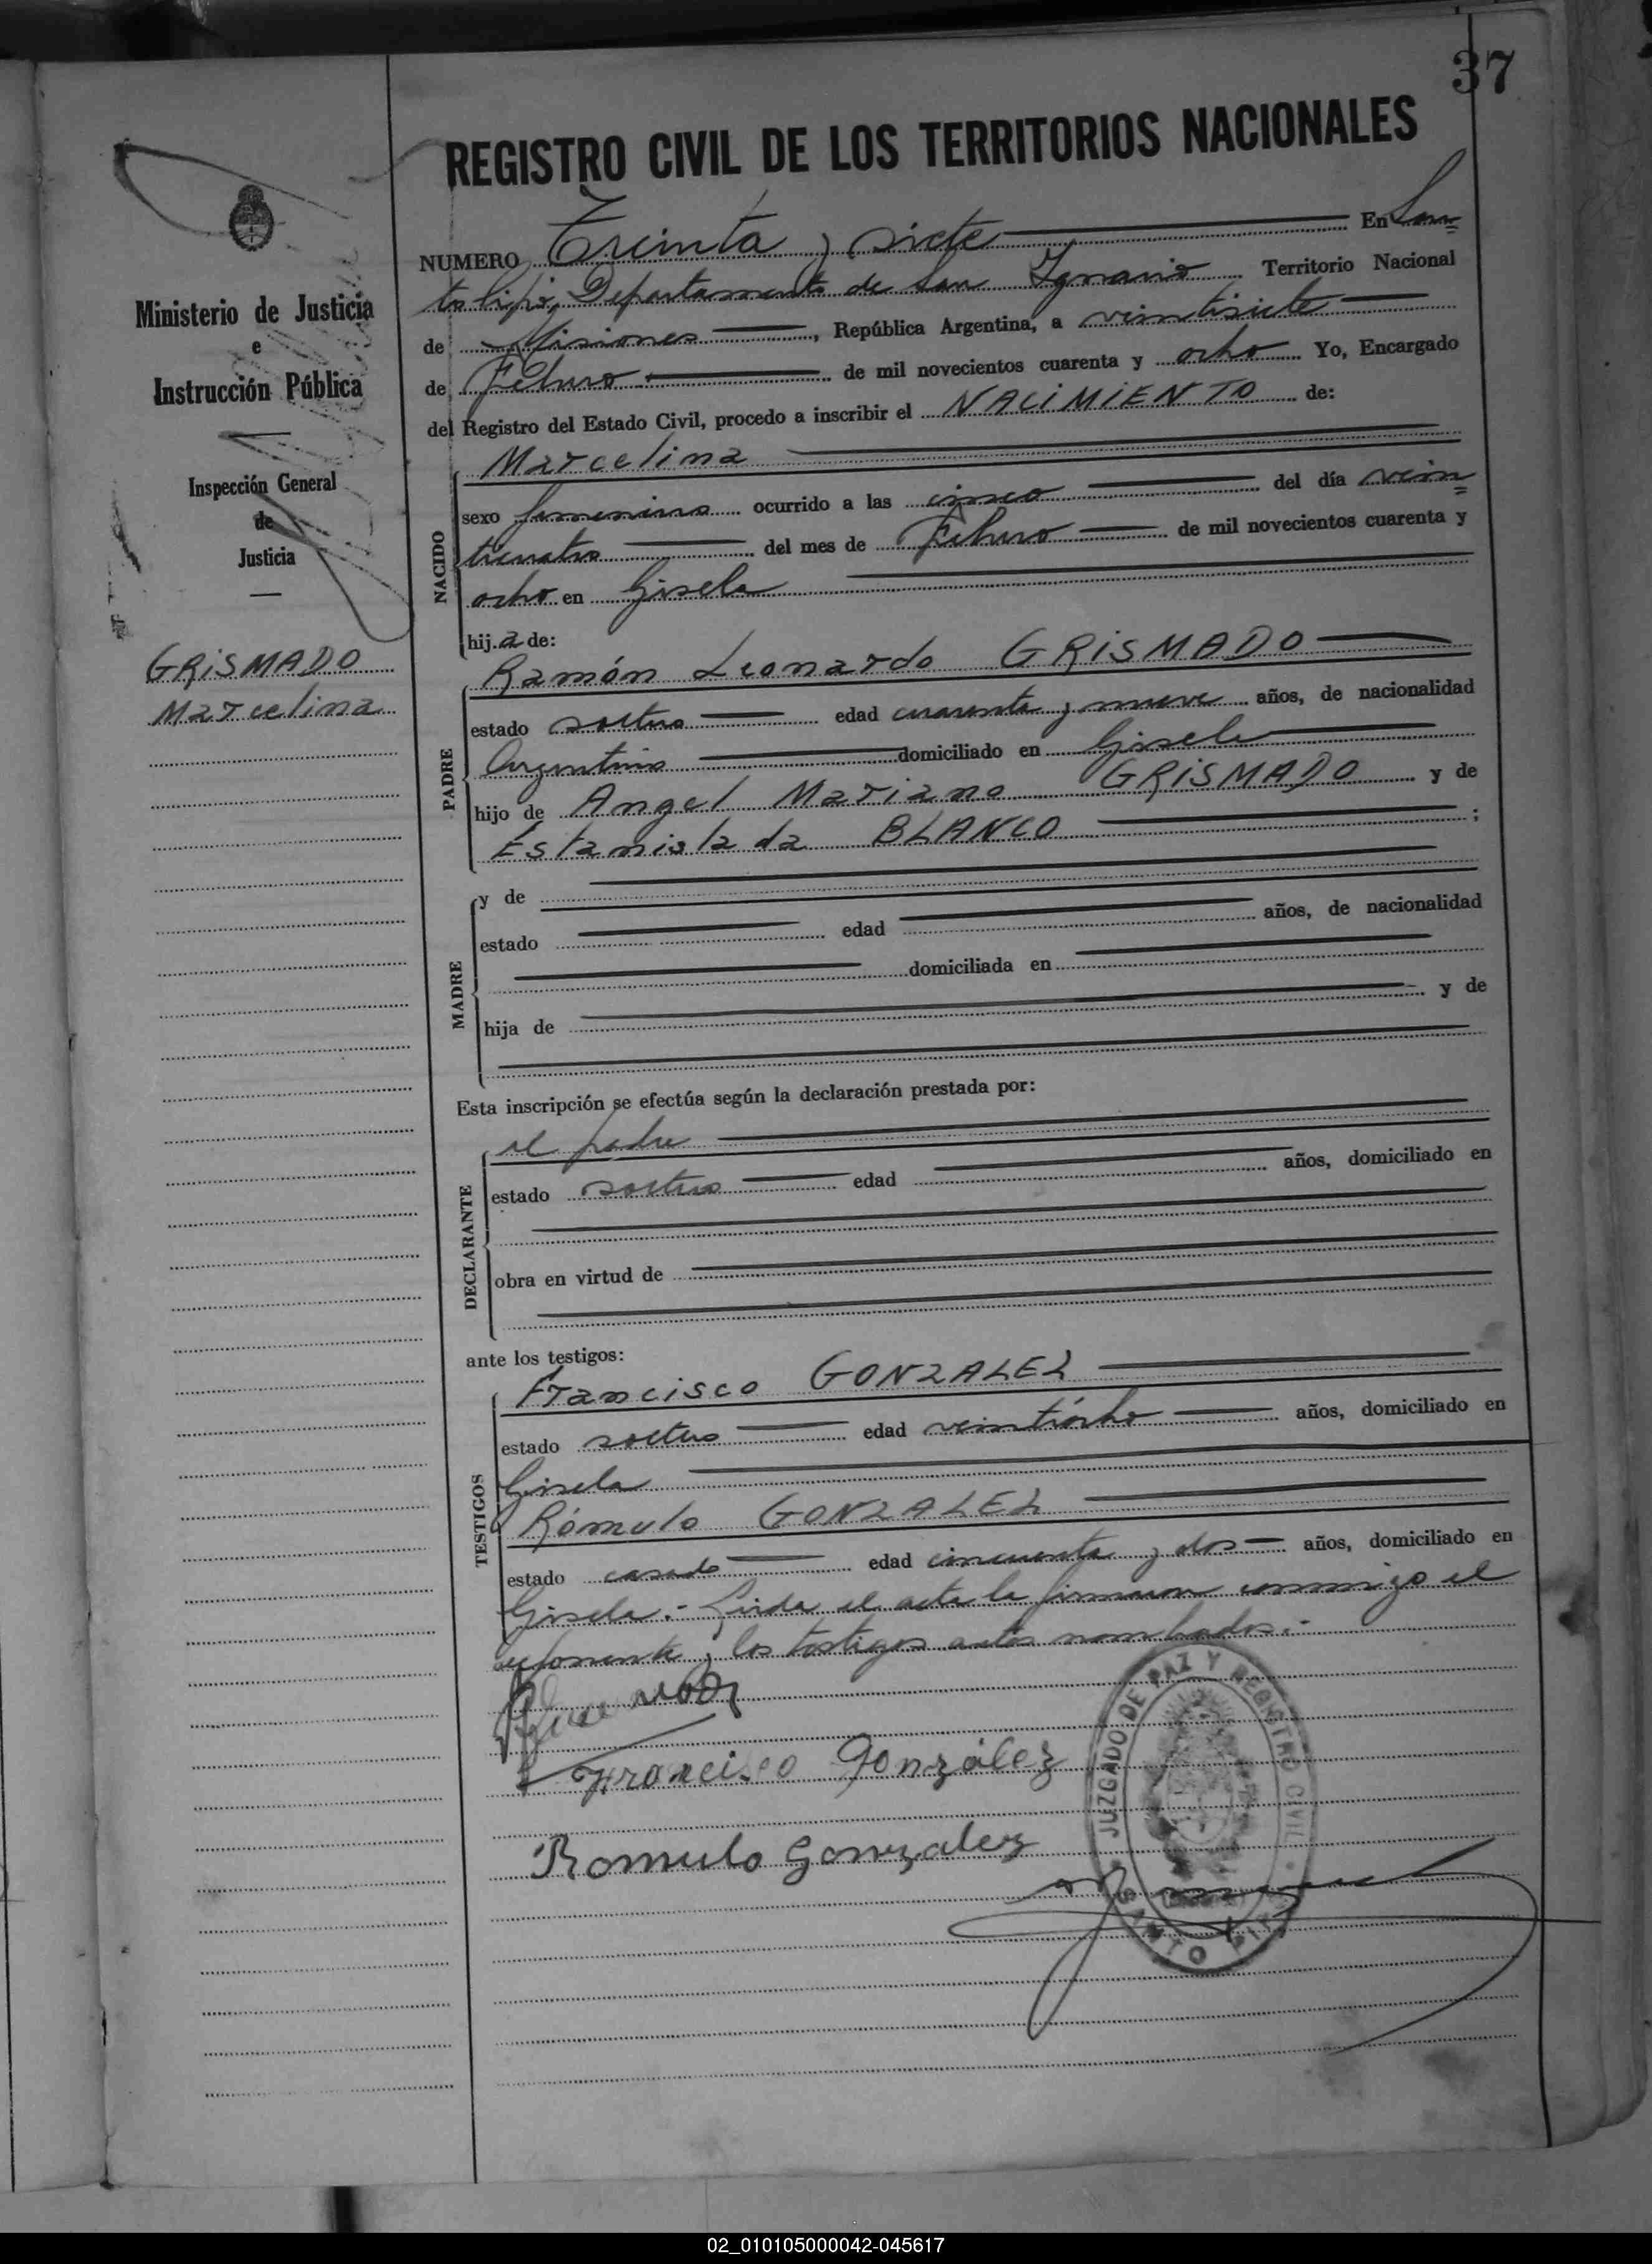 37
REGISTRO CIVIL DE LOS TERRITORIOS NACIONALES
NUMERO Treinta y siete En San
to Pipó, Departamento de San Ignacio Territorio Nacional
de Misiones, República Argentina, a veintisiete
de Febrero de mil novecientos cuarenta y ocho Yo, Encargado
del Registro del Estado Civil, procedo a inscribir el NACIMIENTO de:
Ministerio de Justicia
e
Instrucción Pública
Inspección General
de
Justicia
GRISMADO
Marcelina
NACIDO
Marcelina
sexo femenino ocurrido a las cinco del día vein
ticuatro del mes de Febrero de mil novecientos cuarenta y
ocho en Gisela
hij.a de:
PADRE
Ramón Leonardo GRISMADO
estado soltero edad cuarenta y nueve años, de nacionalidad
Argentino domiciliado en Gisela
hijo de Angel Mariano GRISMADO y de
Estanislada BLANCO ;
MADRE
y de
estado edad años, de nacionalidad
domiciliada en
hija de y de
Esta inscripción se efectúa según la declaración prestada por:
DECLARANTE
el padre
estado soltero edad años, domiciliado en
obra en virtud de
ante los testigos:
TESTIGOS
Francisco GONZALEZ
estado soltero edad veintiocho años, domiciliado en
Gisela
Rómulo GONZALEZ
estado casado edad cincuenta y dos años, domiciliado en
Gisela.- Leida el acta la firmaron conmigo el
exponente y los testigos antes nombrados.-
Francisco González
Romulo Gonzalez
JUZGADO DE PAZ Y REGISTRO CIVIL
SANTO PIPÓ
02_010105000042-045617